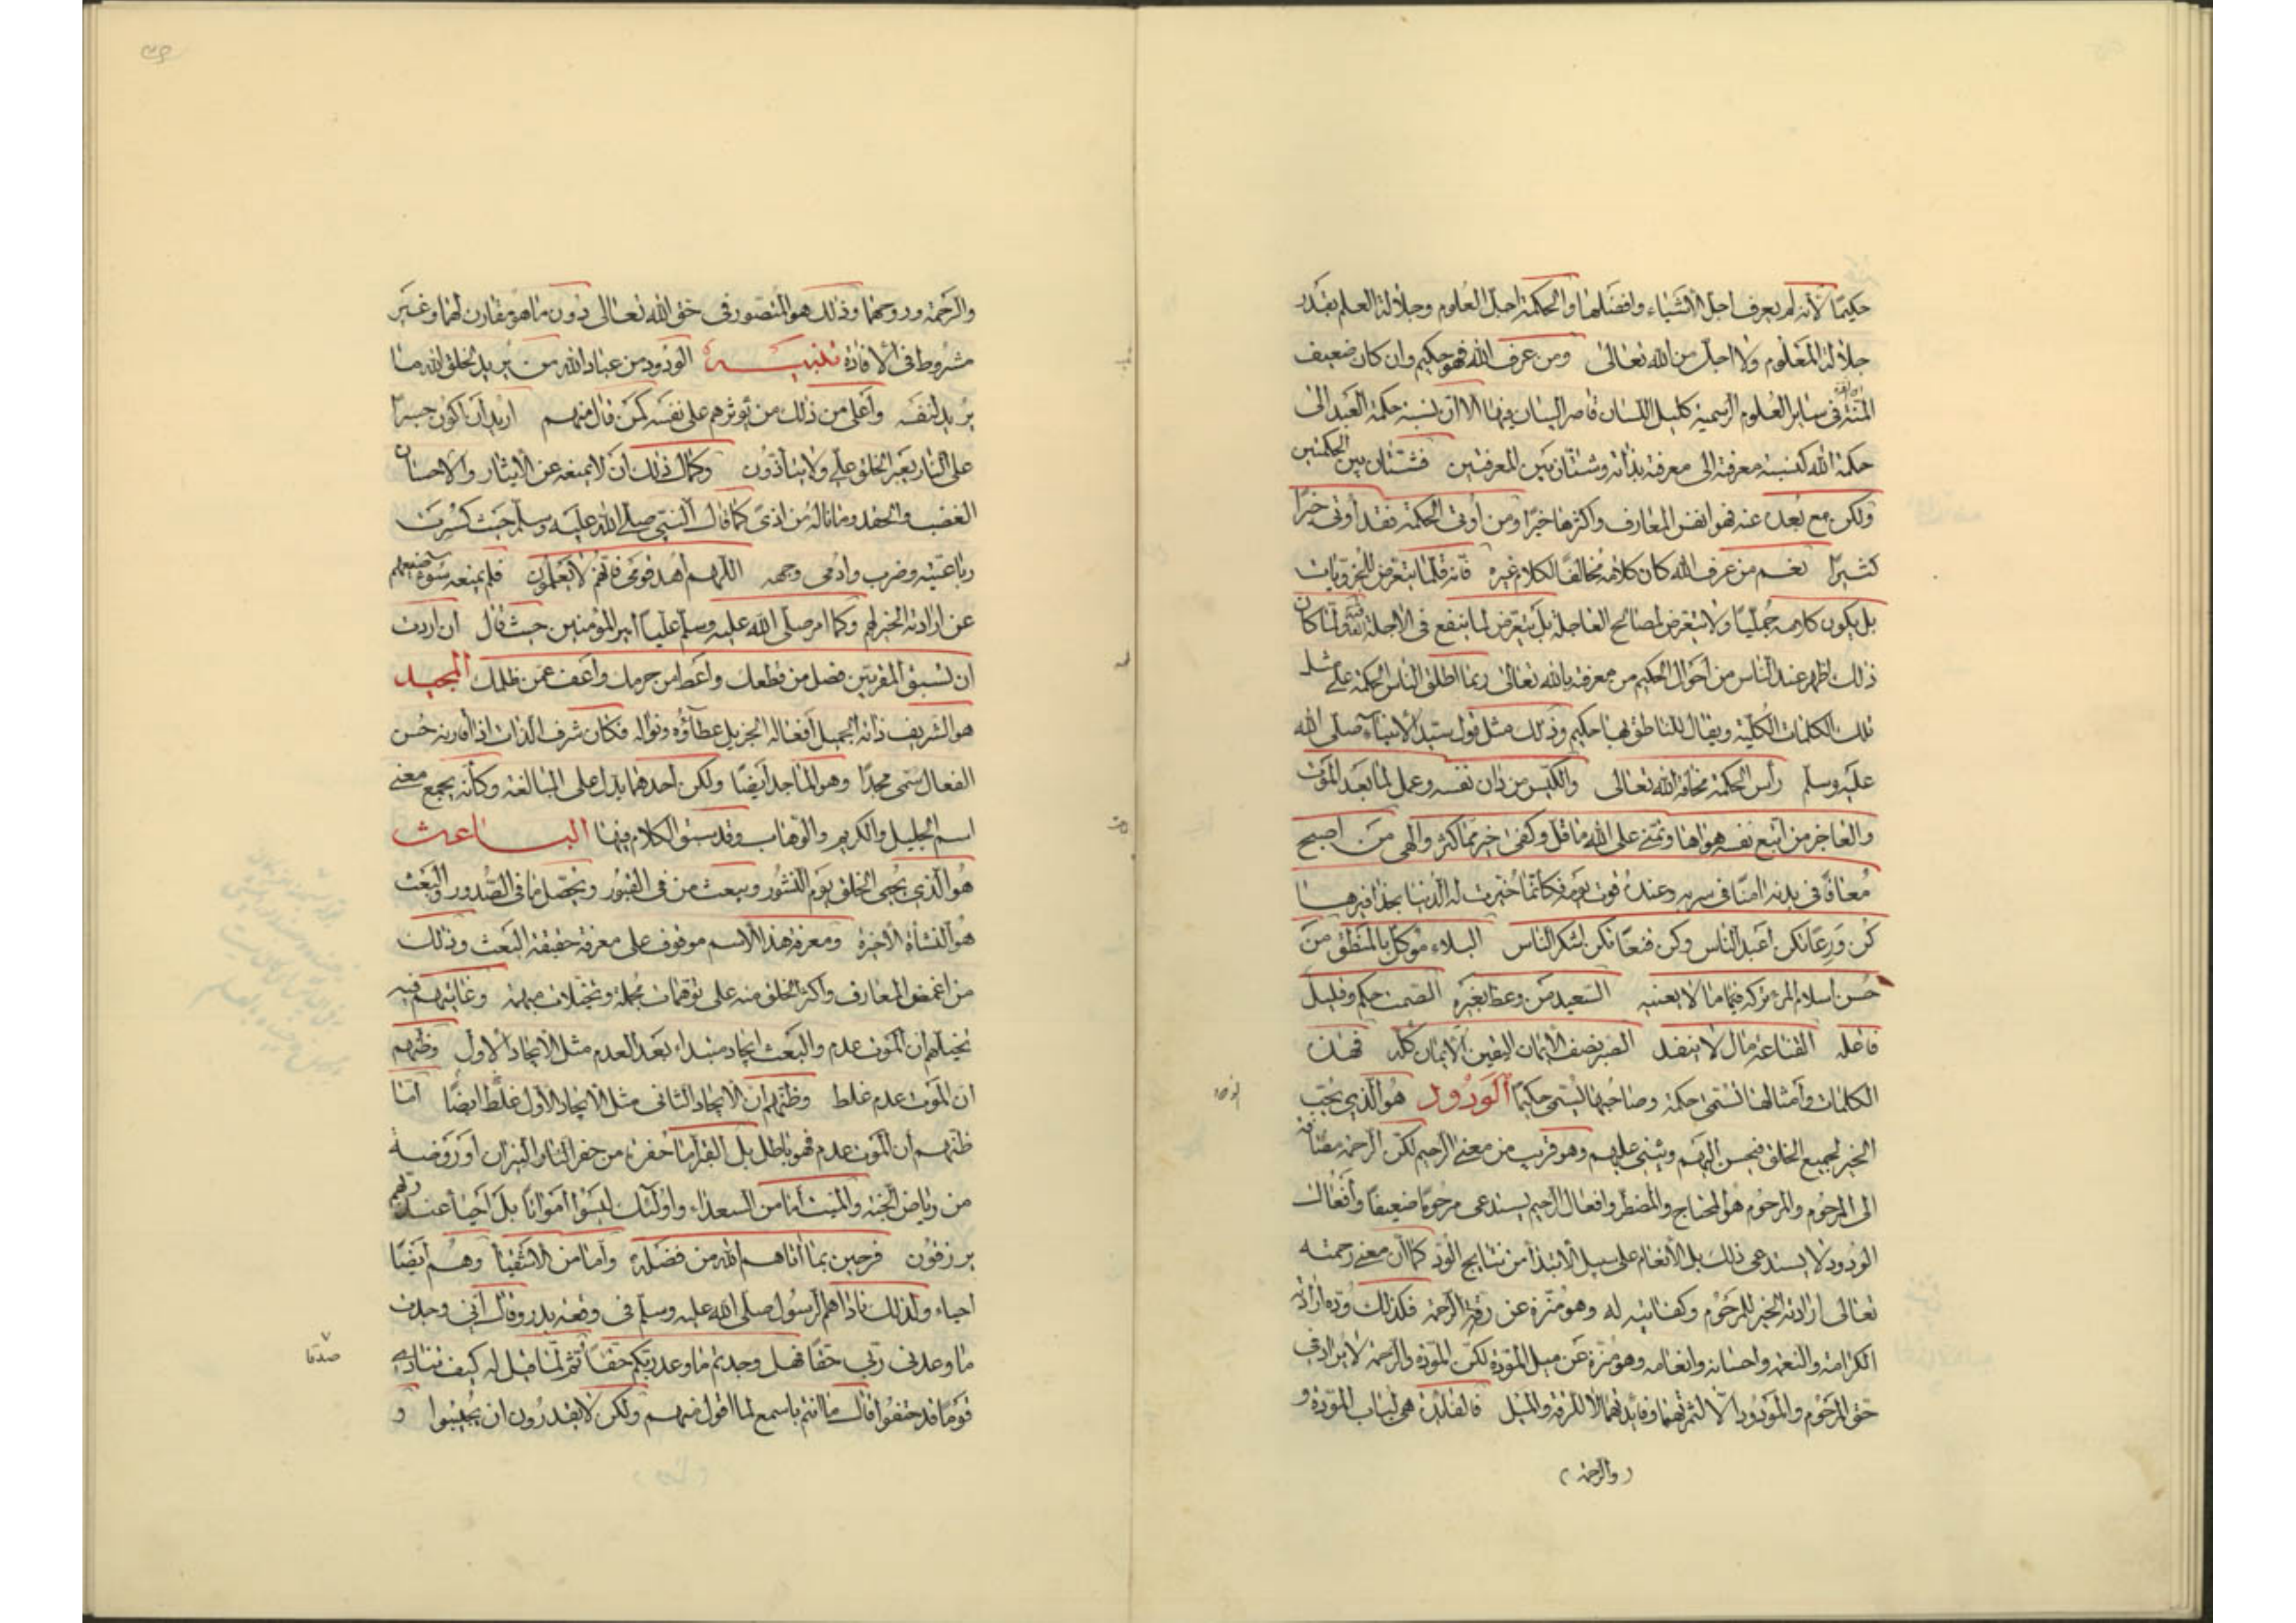 حكيمًا لأنه لم يعرف اجل الأشياء وافضلها والحكمة اجل العلوم وجلالة العلم بقدر
جلالة المعلوم ولا اجل من الله تعالى ومن عرف الله فهو حكيم وان كان ضعيف
المنة فى ساير العلوم الرسمية كليل اللسان قاصر البيان فيها الا ان نسبة حكمة العبد الى
حكمة الله كنسبة معرفته الى معرفته بذاته وشتان بين المعرفتين فشتان بين الحكمتين
ولكن مع بعده عنه فهو انفس المعارف واكثرها خيرًا ومن أوتى الحكمة فقد أوتى خيرًا
كثيرًا نعم من عرف الله كان كلامه مخالفًا لكلام غيره فانه قلما يتعرض للجزويات
بل يكون كلامه جمليًا ولا يتعرض لمصالح العاجلة بل يتعرض لما ينفع فى الآجلة ولما كان
ذلك اظهر عند الناس من احوال الحكيم من معرفته بالله تعالى ربما اطلق الناس الحكمة على مثل
تلك الكلمات الكلية ويقال للناطق بها حكيم وذلك مثل قول سيد الأنبياء صلى الله
عليه وسلم رأس الحكمة مخافة الله تعالى والكيس من دان نفسه وعمل لما بعد الموت
والعاجز من اتبع نفسه هواها وتمنى على الله ما قل وكفى خير مما كثر والهى من اصبح
معافًا فى بدنه امنًا فى سربه وعنده قوت يومه فكانما خيرت له الدنيا بحذافيرها
كن ورعًا تكن اعبد الناس وكن قنعًا تكن اشكر الناس البلاء موكل بالمنطق من
حسن اسلام المرء تركه فيما ما لا يعنيه السعيد من وعظ بغيره الصمت حكم وقليل
فاعله القناعة مال لا ينفد الصبر نصف الايمان اليقين الايمان كله فهذه
الكلمات وأمثالها تسمى حكمة وصاحبها يسمى حكيمًا الودود هو الذى يحب
الخير لجميع الخلق فيحسن اليهم ويثنى عليهم وهو قريب من معنى الرحيم لكن الرحمة مضافة
الى المرحوم والمرحوم هو المحتاج والمضطر وافعال الرحيم يستدعى مرحومًا ضعيفًا وأفعال
الودود لا يستدعى ذلك بل الأنعام على سبيل الأبتداء من نتايج الود كما أن معنى رحمته
تعالى ارادته الخير للمرحوم وكفايته له وهو منزه عن رقة الرحمة فكذلك وده ارادته
الكرامة والنعمة واحسانه وانعامه وهو منزه عن ميل المودة لكن المودة والرحمة لا يراد فى
حق المرحوم والمودود الا لثمرتهما وفائدتهما لا للرقة والميل فالفائدة هى لباب المودة و
(والرحمة)
والرحمة وروحهما وذلك هو المتصور فى حق الله تعالى دون ما هو مقارن لهما وغير
مشروط فى الأفادة تنبيه الودود من عباد الله من يريد لخلق الله ما
يريد لنفسه وأعلى من ذلك من يوثرهم على نفسه كمن قال منهم اريد أن اكون جسرًا
على النار يعبر الخلق على ولا يتأذون وكمال ذلك أن لا يمنعه عن الأيثار والاحسان
الغضب والحقد وما ناله من اذى كما قال النبى صلى الله عليه وسلم حيث كسرت
رباعيته وضرب وادمى وجهه اللهم اهد قومى فانهم لا يعلمون فلم يمنعه سوء صنيعهم
عن ارادته الخير لهم وكما امر صلى الله عليه وسلم عليًا امير المؤمنين حيث قال ان اردت
ان تسبق المقربين فصل من قطعك واعط من حرمك واعف عمن ظلمك المجيد
هو الشريف ذاته الجميل أفعاله الجزيل عطاؤه ونواله فكان شرف الذات اذا قارنه حسن
الفعال سمى مجدًا وهو الماجد أيضًا ولكن أحدهما يدل على المبالغة وكأنه يجمع معنى
اسم الجليل والكريم والوهاب وقد سبق الكلام فيها الباعث
هو الذى يحيى الخلق يوم النشور ويبعث من فى القبور ويحصل ما فى الصدور والبعث
هو النشأة الأخرة ومعرفة هذا الأسم موقوف على معرفة حقيقة البعث وذلك
من اغمض المعارف واكثر الخلق منه على توهمات مجملة وتخيلات مبهمة وغايتهم فيه
تخيلهم ان الموت عدم والبعث ايجاد مبتداء بعد العدم مثل الأيجاد الأول وظنهم
ان الموت عدم غلط وظنهم ان الأيجاد الثانى مثل الأيجاد الأول غلط ايضًا اما
ظنهم أن الموت عدم فهو باطل بل القبر اما حفرة من حفر النار والنيران أو روضة
من رياض الجنة والميت أما من السعداء واولئك ليسوا أمواتًا بل أحياء عند ربهم
يرزقون فرحين بما أتاهم الله من فضله واما من الأشقياء وهم أيضًا
احياء ولذلك ناداهم الرسول صلى الله عليه وسلم فى وقعة بدر وقال أنى وجدت
ما وعدنى ربى حقًا فهل وجدتم ما وعد ربكم حقًا ثم لما قيل له كيف تنادى
صدقا
قومًا قد جيفوا قال ما انتم باسمع لما اقول منهم ولكن لا يقدرون ان يجيبوا و